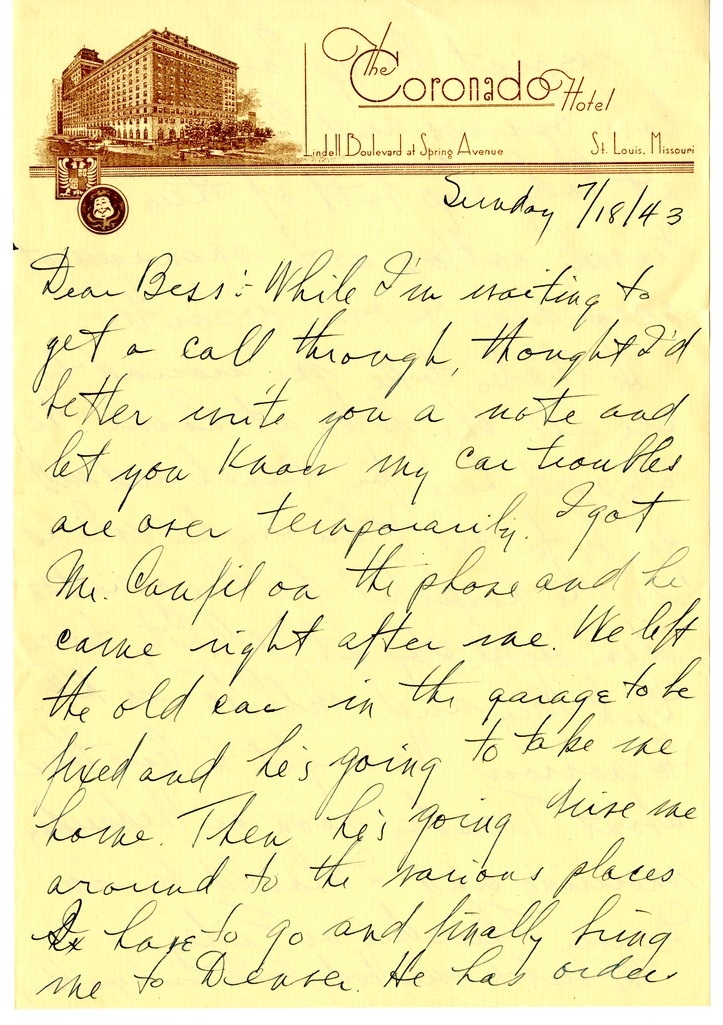 The Coronado Hotel
Lindell Boulevard at Spring Avenue St. Louis, Missouri
Sunday 7/18/43
Dear Bess:- While I'm waiting to
get a call through, thought I'd
better write you a note and
let you know my car troubles
are over temporarily. I got
Mr. Canfil on the phone and he
came right after me. We left
the old car in the garage to be
fixed and he's going to take me
home. Then he's going drive me
around to the various places
I have to go and finally bring
me to Denver. He has orders